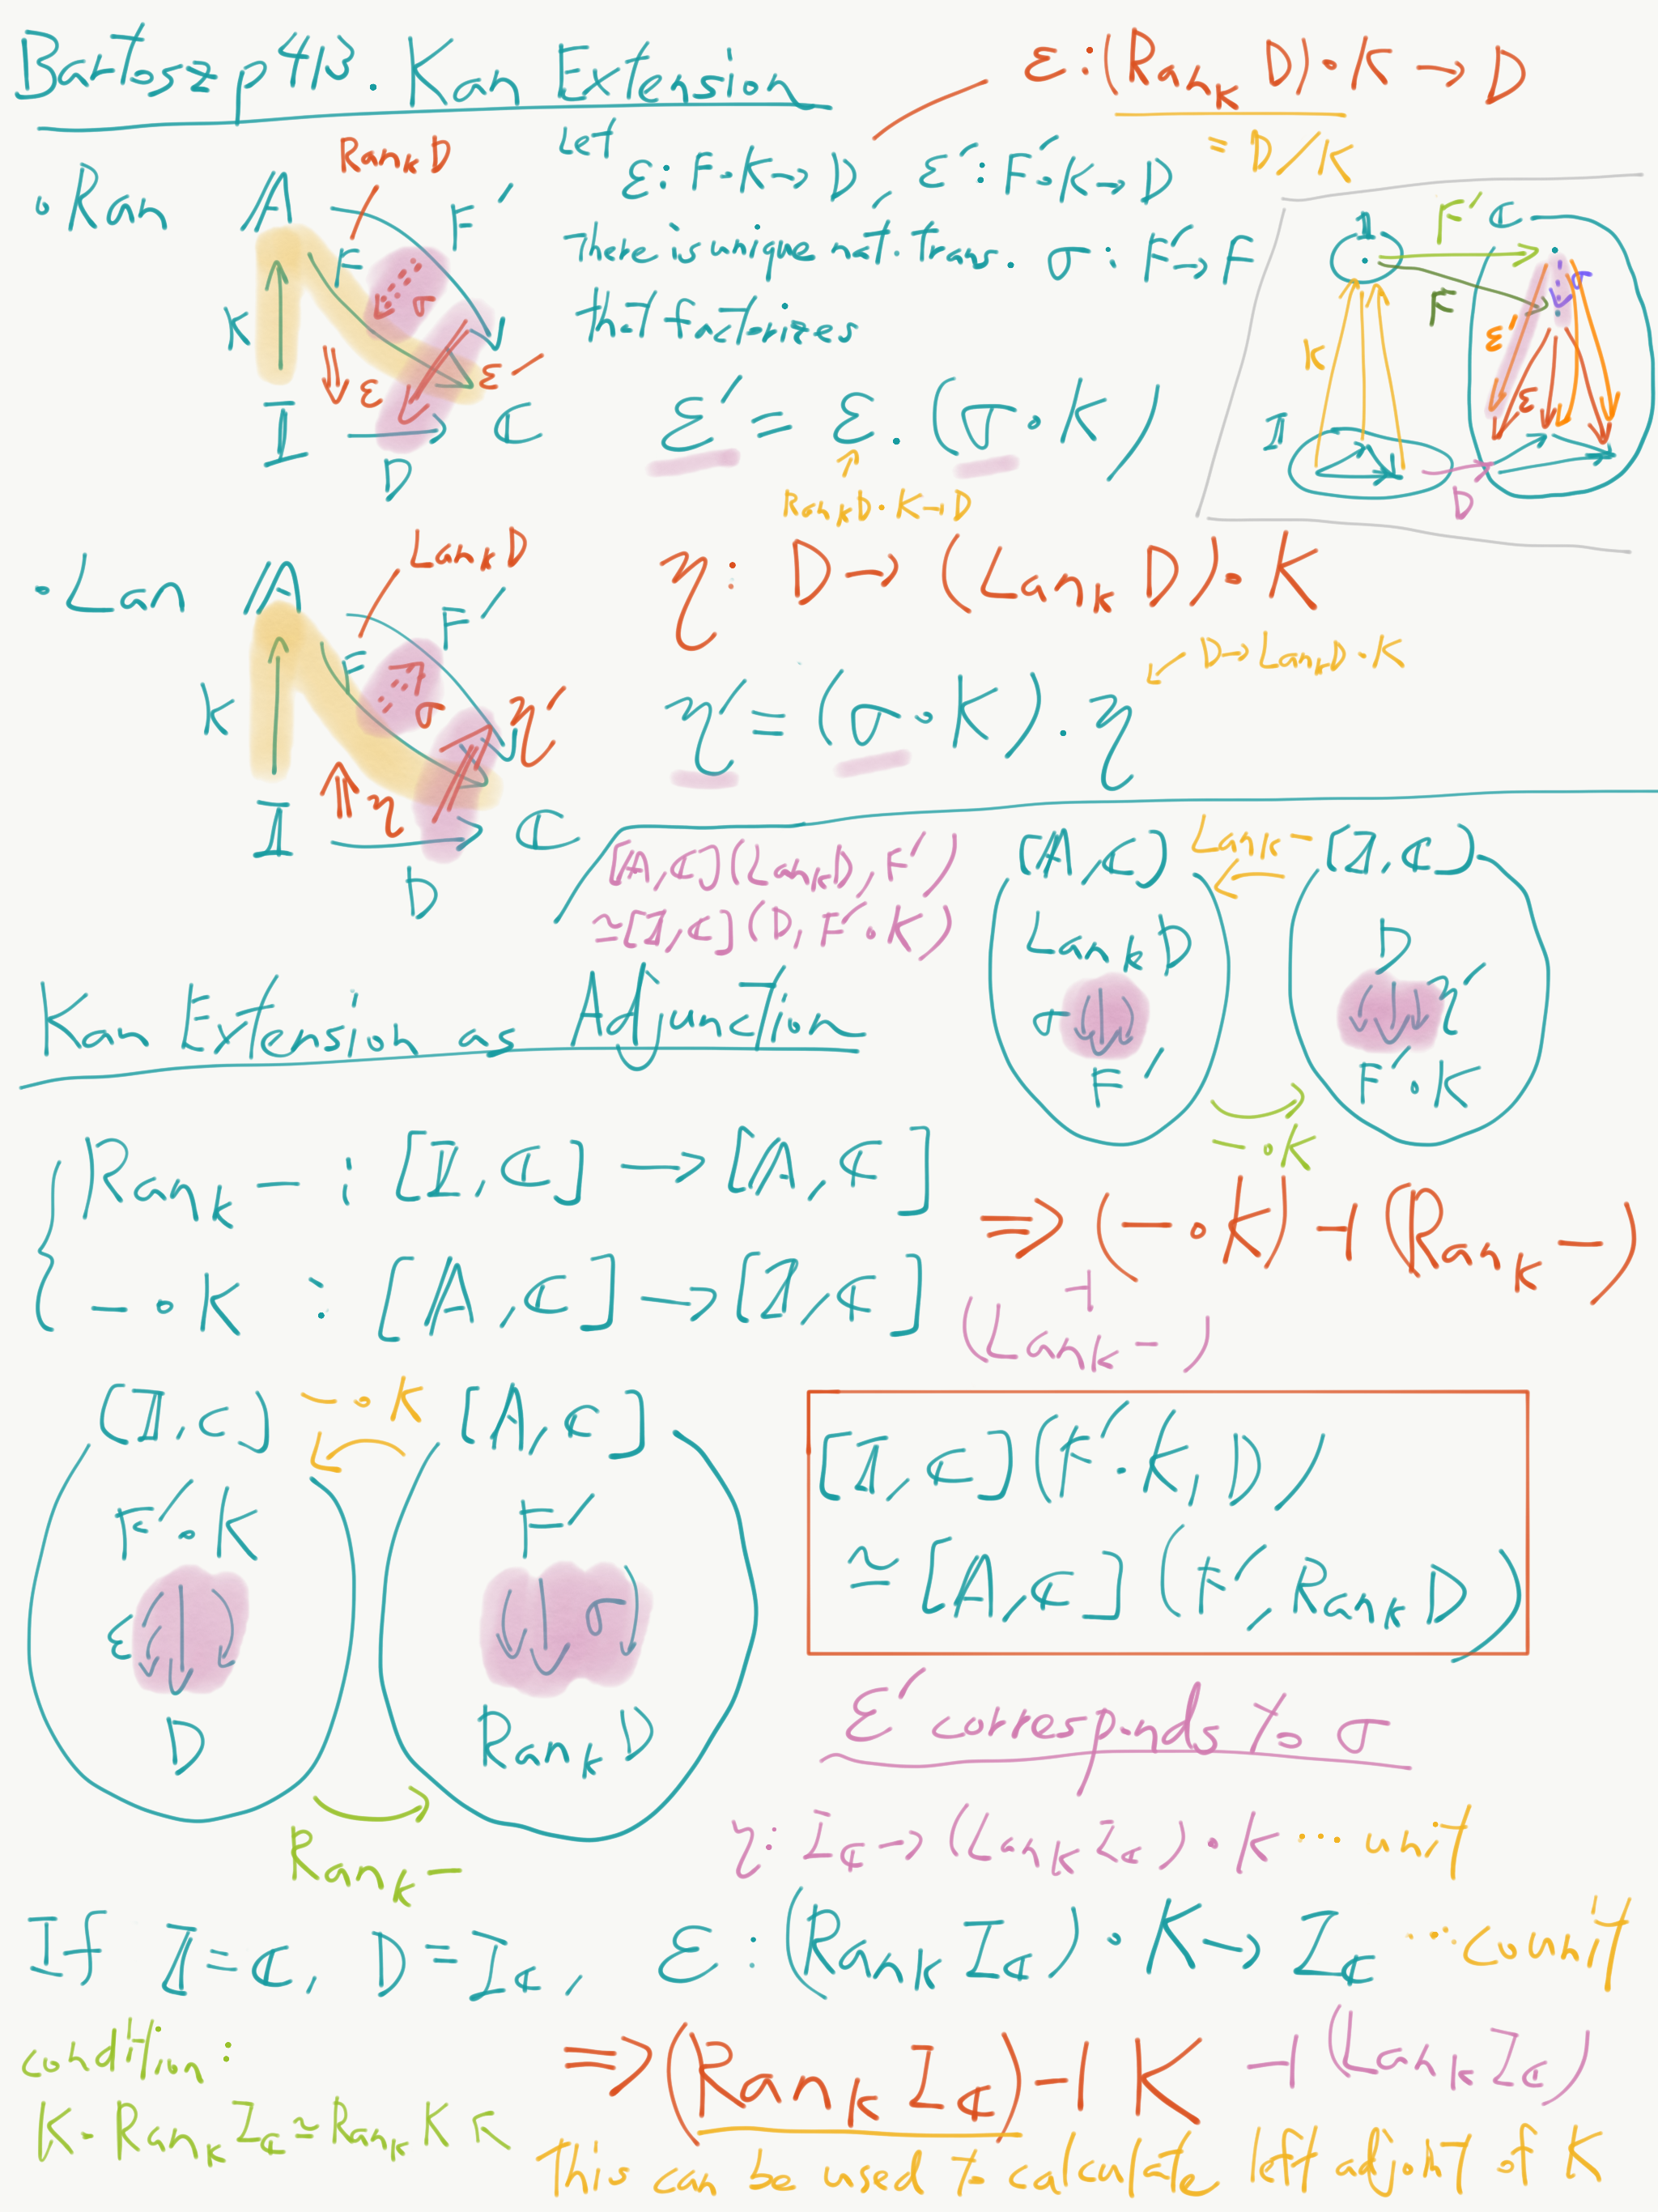 Bartosz p413. Kan Extension
ε : (Ran_K D) ∘ K → D
= D/K
• Ran
Ran_K D
𝔸
F'
F
σ
K
ε
ε'
𝕀
ℂ
D
Let ε : F∘K → D, ε' : F'∘K → D
There is unique nat. trans. σ : F' → F
that factorizes
ε' = ε . (σ ∘ K)
Ran_K D ∘ K → D
𝟙
F'
ℂ
F
σ
K
ε'
ε
𝕀
D
• Lan
Lan_K D
𝔸
F'
F
σ
K
η'
η
𝕀
ℂ
D
η : D → (Lan_K D) ∘ K
D → Lan_K D ∘ K
η' = (σ ∘ K) . η
[𝔸, ℂ](Lan_K D, F')
≃ [𝕀, ℂ](D, F' ∘ K)
[𝔸, ℂ]
Lan_K −
[𝕀, ℂ]
Lan_K D
σ
F'
D
η'
F' ∘ K
− ∘ K
Kan Extension as Adjunction
Ran_K − : [𝕀, ℂ] → [𝔸, ℂ]
− ∘ K : [𝔸, ℂ] → [𝕀, ℂ]
⇒ (− ∘ K) ⊣ (Ran_K −)
⊣
(Lan_K −)
[𝕀, C]
− ∘ K
[𝔸, ℂ]
F' ∘ K
ε
D
F'
σ
Ran_K D
Ran_K −
[𝕀, ℂ](F' ∘ K, D)
≃ [𝔸, ℂ](F', Ran_K D)
ε' corresponds to σ
η : I_ℂ → (Lan_K I_ℂ) ∘ K ... unit
If 𝕀 = ℂ, D = I_ℂ, ε : (Ran_K I_ℂ) ∘ K → I_ℂ ... counit
condition:
K ∘ Ran_K I_ℂ ≃ Ran_K K
⇒ (Ran_K I_ℂ) ⊣ K ⊣ (Lan_K I_ℂ)
This can be used to calculate left adjoint of K